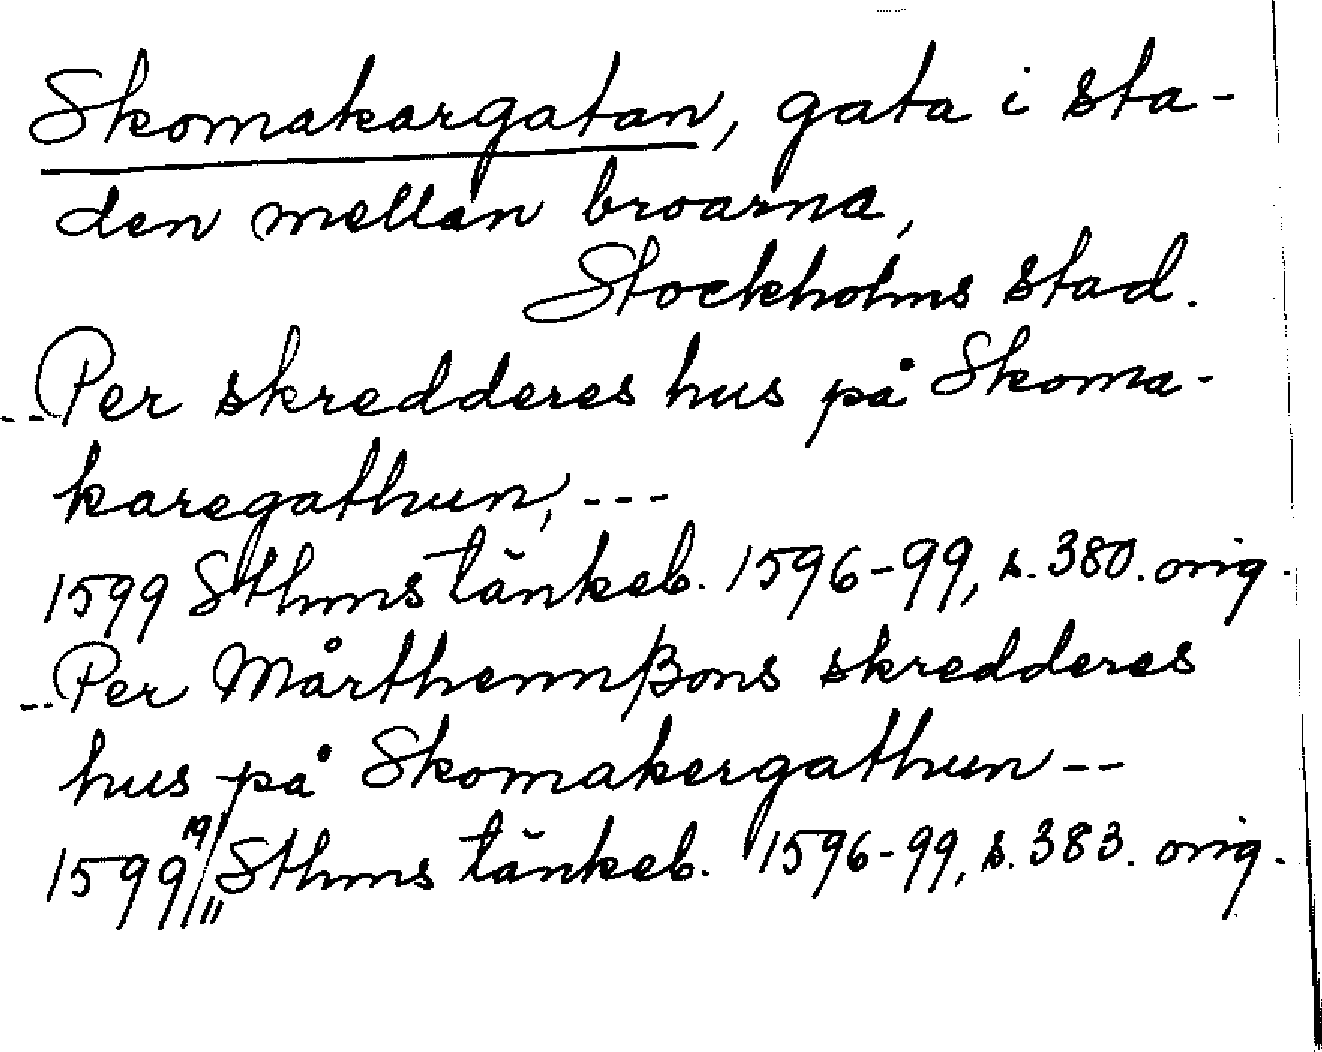 Skomakargatan, gata i sta-
den mellan broarna,
Stockholms stad.
--Per skredderes hus på Skoma-
karegathun, ---
1599 Sthms tänkeb. 1596-99, s. 380. orig.
--Per MårthennßBons skredderes
hus på Skomakergathun --
1599 19/11 Sthms tänkeb. 1596-99, s. 383. orig.